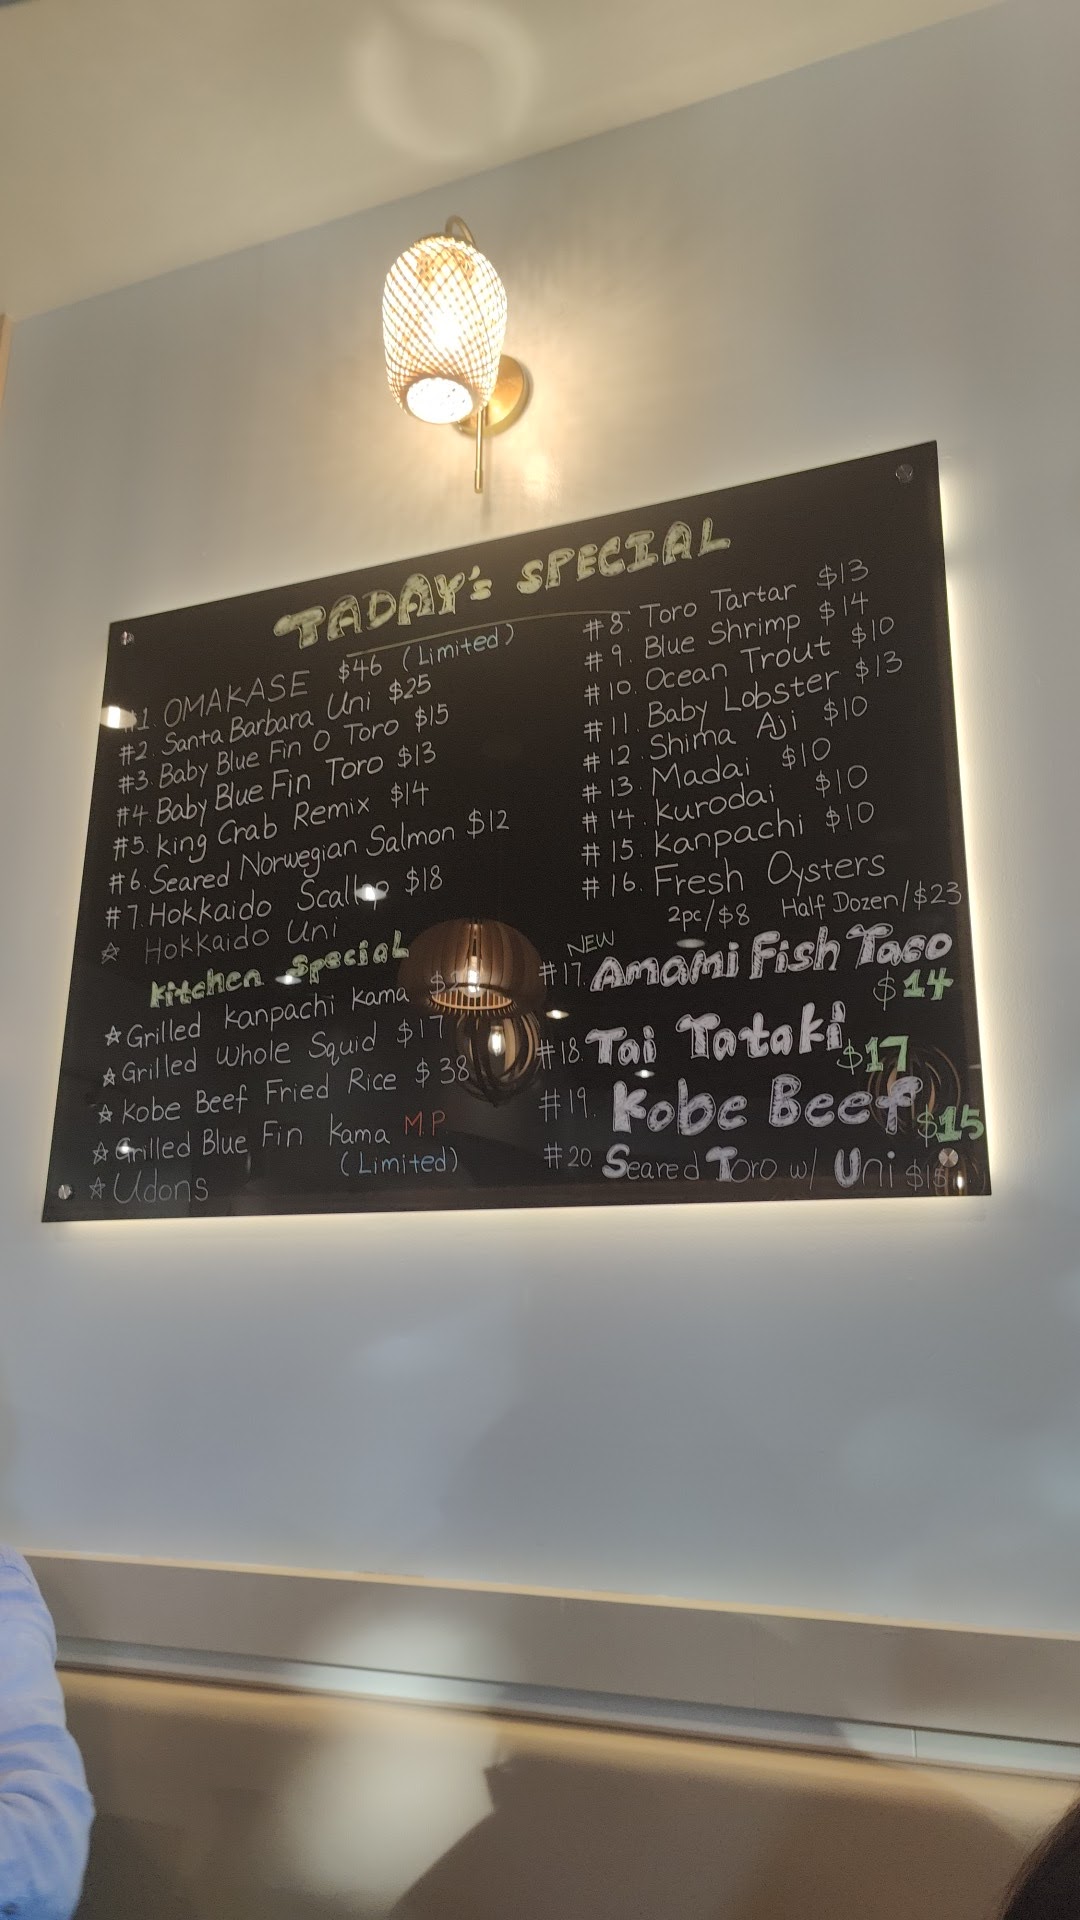 TADAY's SPECIAL
#1. OMAKASE $46 (Limited)
#2. Santa Barbara Uni $25
#3. Baby Blue Fin O Toro $15
#4. Baby Blue Fin Toro $13
#5. King Crab Remix $14
#6. Seared Norwegian Salmon $12
#7. Hokkaido Scallop $18
☆ Hokkaido Uni
Kitchen Special
☆ Grilled Kanpachi Kama
☆ Grilled Whole Squid $17
☆ Kobe Beef Fried Rice $38
☆ Grilled Blue Fin Kama MP
(Limited)
☆ Udons
#8. Toro Tartar $13
#9. Blue Shrimp $14
#10. Ocean Trout $10
#11. Baby Lobster $13
#12. Shima Aji $10
#13. Madai $10
#14. Kurodai $10
#15. Kanpachi $10
#16. Fresh Oysters
2pc/$8 Half Dozen/$23
NEW
#17. Amami Fish Taco
$14
#18. Tai Tataki $17
#19. Kobe Beef $15
#20. Seared Toro w/ Uni